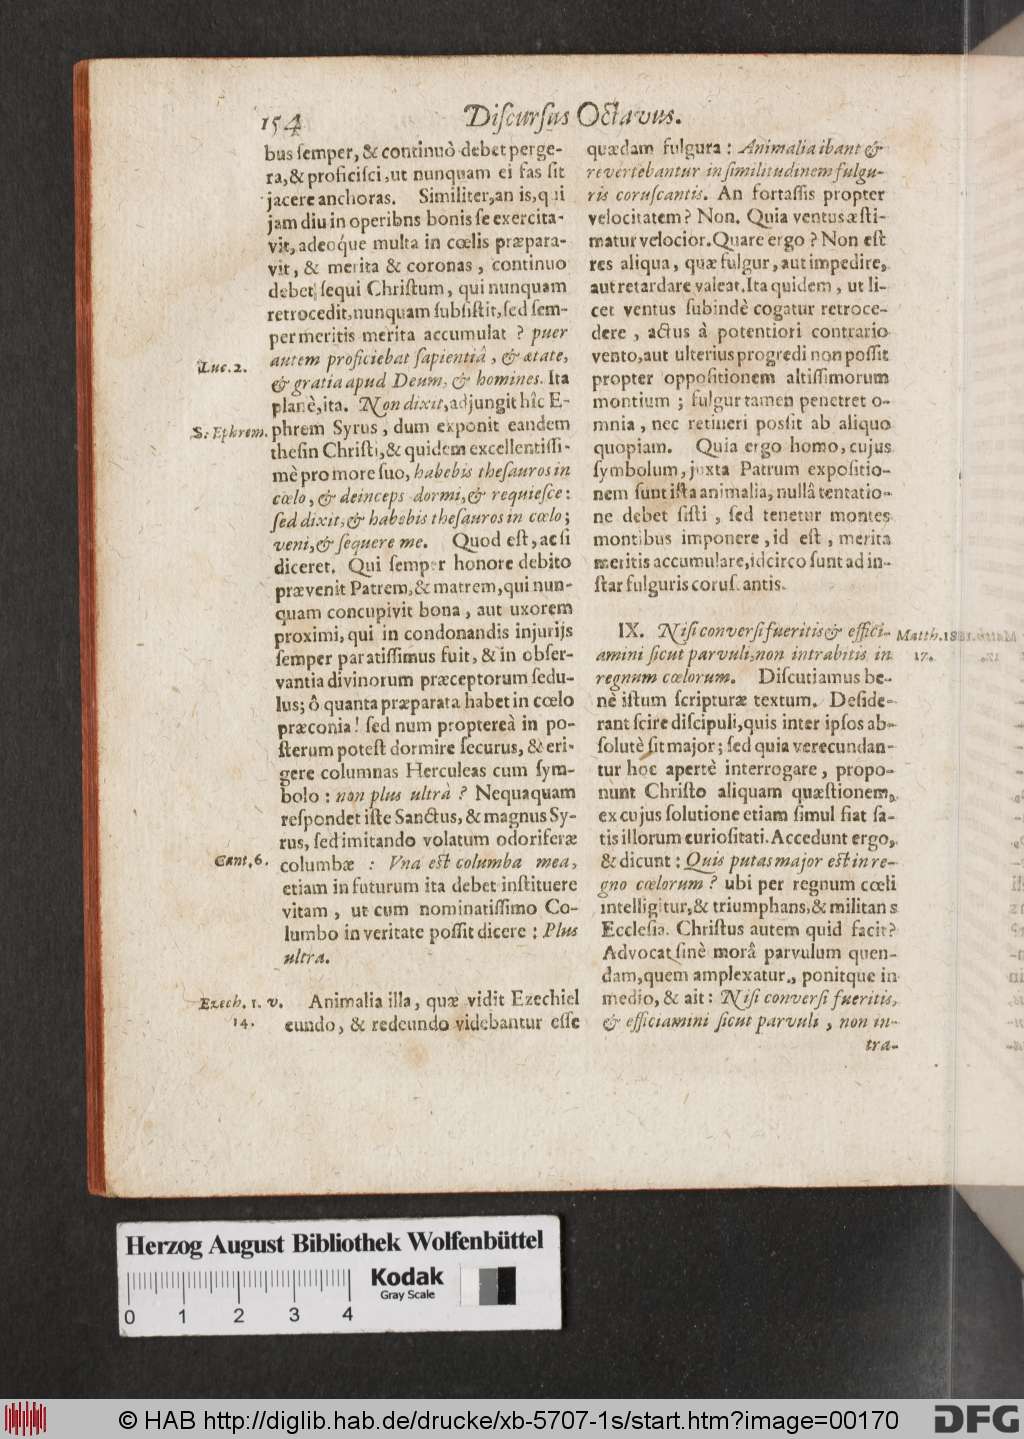 154
Discursus Octavus.
bus semper, & continuò debet perge-
ra, & proficisci, ut nunquam ei fas sit
jacere anchoras. Similiter, an is, qui
jam diu in operibns bonis se exercita-
vit, adeoq́ue multa in cœlis præpara-
vit, & merita & coronas, continuo
debet sequi Christum, qui nunquam
retrocedit, nunquam subsistit, sed sem-
per meritis merita accumulat ? puer
autem proficiebat sapientiâ, & ætate,
Luc. 2.
& gratia apud Deum, & homines. Ita
planè, ita. Non dixit, adjungit hîc E-
S. Ephrem.
phrem Syrus, dum exponit eandem
thesin Christi, & quidem excellentissi-
mè pro more suo, habebis thesauros in
cœlo, & deinceps dormi, & requiesce:
sed dixit, & habebis thesauros in cœlo;
veni, & sequere me. Quod est, ac si
diceret. Qui semper honore debito
prævenit Patrem, & matrem, qui nun-
quam concupivit bona, aut uxorem
proximi, qui in condonandis injurijs
semper paratissimus fuit, & in obser-
vantia divinorum præceptorum sedu-
lus; ô quanta præparata habet in cœlo
præconia! sed num proptereà in po-
sterum potest dormire securus, & eri-
gere columnas Herculeas cum sym-
bolo : non plus ultrà ? Nequaquam
respondet iste Sanctus, & magnus Sy-
rus, sed imitando volatum odoriferæ
Cant. 6.
columbæ : Vna est columba mea,
etiam in futurum ita debet instituere
vitam, ut cum nominatissimo Co-
lumbo in veritate possit dicere : Plus
ultra.
Ezech. 1. v.
14.
Animalia illa, quæ vidit Ezechiel
eundo, & redeundo videbantur esse
quædam fulgura : Animalia ibant &
revertebantur in similitudinem fulgu-
ris coruscantis. An fortassis propter
velocitatem ? Non. Quia ventus æsti-
matur velocior. Quare ergo ? Non est
res aliqua, quæ fulgur, aut impedire,
aut retardare valeat. Ita quidem, ut li-
cet ventus subindè cogatur retroce-
dere, actus à potentiori contrario
vento, aut ulterius progredi non possit
propter oppositionem altissimorum
montium ; fulgur tamen penetret o-
mnia, nec retineri possit ab aliquo
quopiam. Quia ergo homo, cujus
symbolum, juxta Patrum expositio-
nem sunt ista animalia, nullâ tentatio-
ne debet sisti, sed tenetur montes
montibus imponere, id est, merita
meritis accumulare, idcirco sunt ad in-
star fulguris coruscantis.
IX. Nisi conversi fueritis & effici-
Matth. 18.
17.
amini sicut parvuli, non intrabitis in
regnum cœlorum. Discutiamus be-
nè istum scripturæ textum. Deside-
rant scire discipuli, quis inter ipsos ab-
solutè sit major; sed quia verecundan-
tur hoc apertè interrogare, propo-
nunt Christo aliquam quæstionem,
ex cujus solutione etiam simul fiat sa-
tis illorum curiositati. Accedunt ergo,
& dicunt : Quis putas major est in re-
gno cœlorum ? ubi per regnum cœli
intelligitur, & triumphans, & militans
Ecclesia. Christus autem quid facit?
Advocat sinè morâ parvulum quen-
dam, quem amplexatur, ponitque in
medio, & ait : Nisi conversi fueritis,
& efficiamini sicut parvuli, non in-
tra-
Herzog August Bibliothek Wolfenbüttel
0 1 2 3 4
Kodak
Gray Scale
© HAB http://diglib.hab.de/drucke/xb-5707-1s/start.htm?image=00170
DFG